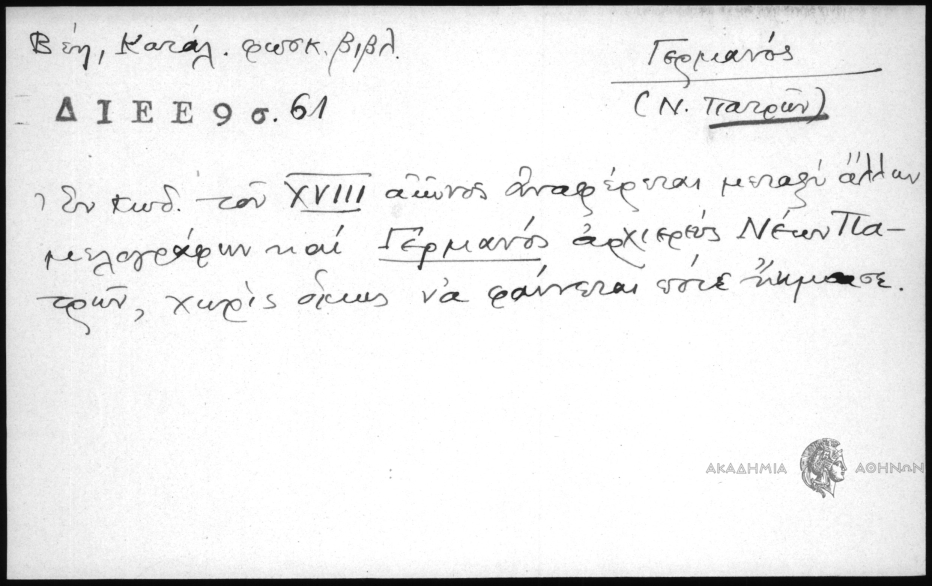 Βέη, Κατάλ. φωσκ. βιβλ.
Γερμανός
(Ν. Πατρῶν)
ΔΙΕΕ 9 σ. 61
Ἐν κωδ. τοῦ XVIII αἰῶνος ἀναφέρεται μεταξὺ ἄλλων
μελογράφων καὶ Γερμανός ἀρχιερεὺς Νέων Πα-
τρῶν, χωρὶς ὅμως νὰ φαίνεται πότε ἤκμασε.
ΑΚΑΔΗΜΙΑ ΑΘΗΝΩΝ